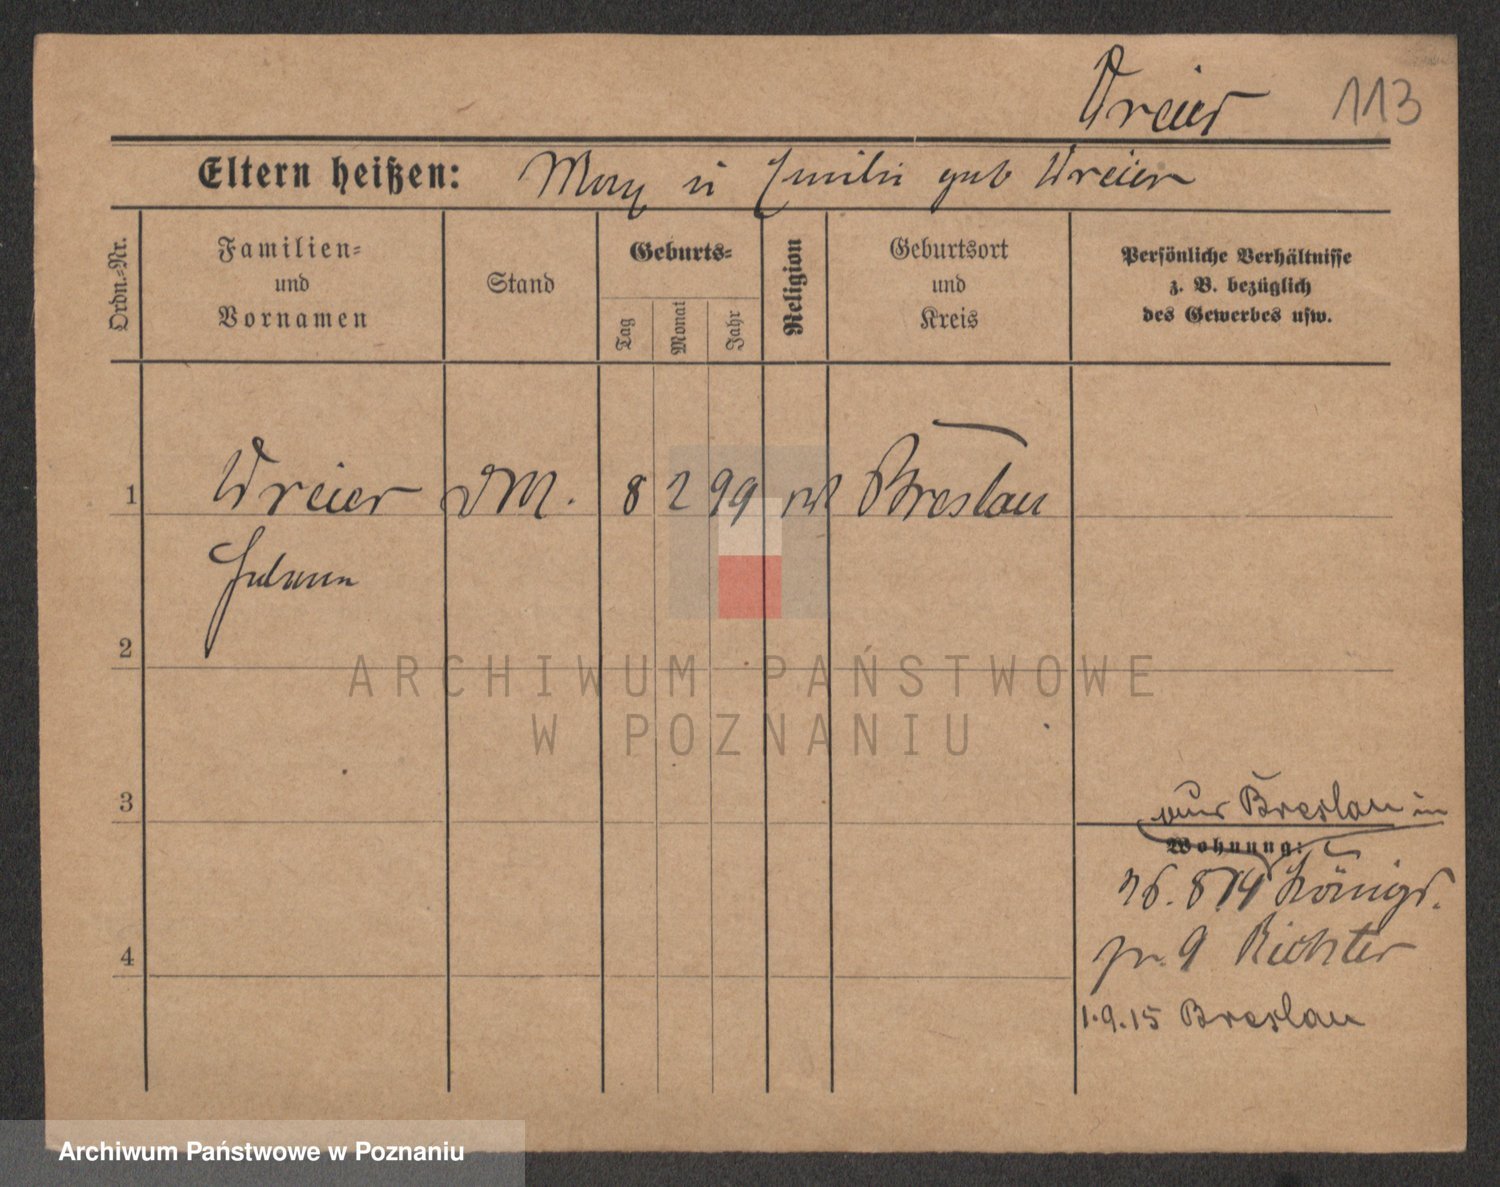 Dreier 113
Eltern heißen: Max u Emilie geb Dreier
Ordn.-Nr.
Familien-
und
Vornamen
Stand
Geburts-
Tag
Monat
Jahr
Religion
Geburtsort
und
Kreis
Persönliche Verhältnisse
z. B. bezüglich
des Gewerbes usw.
1 Dreier DM. 8 2 99 Breslau
2
ARCHIWUM PAŃSTWOWE
W POZNANIU
3
aus Breslau in
Wohnung:
26.8.14 Königs.
pr. 9 Richter
4
1.9.15 Breslau
Archiwum Państwowe w Poznaniu